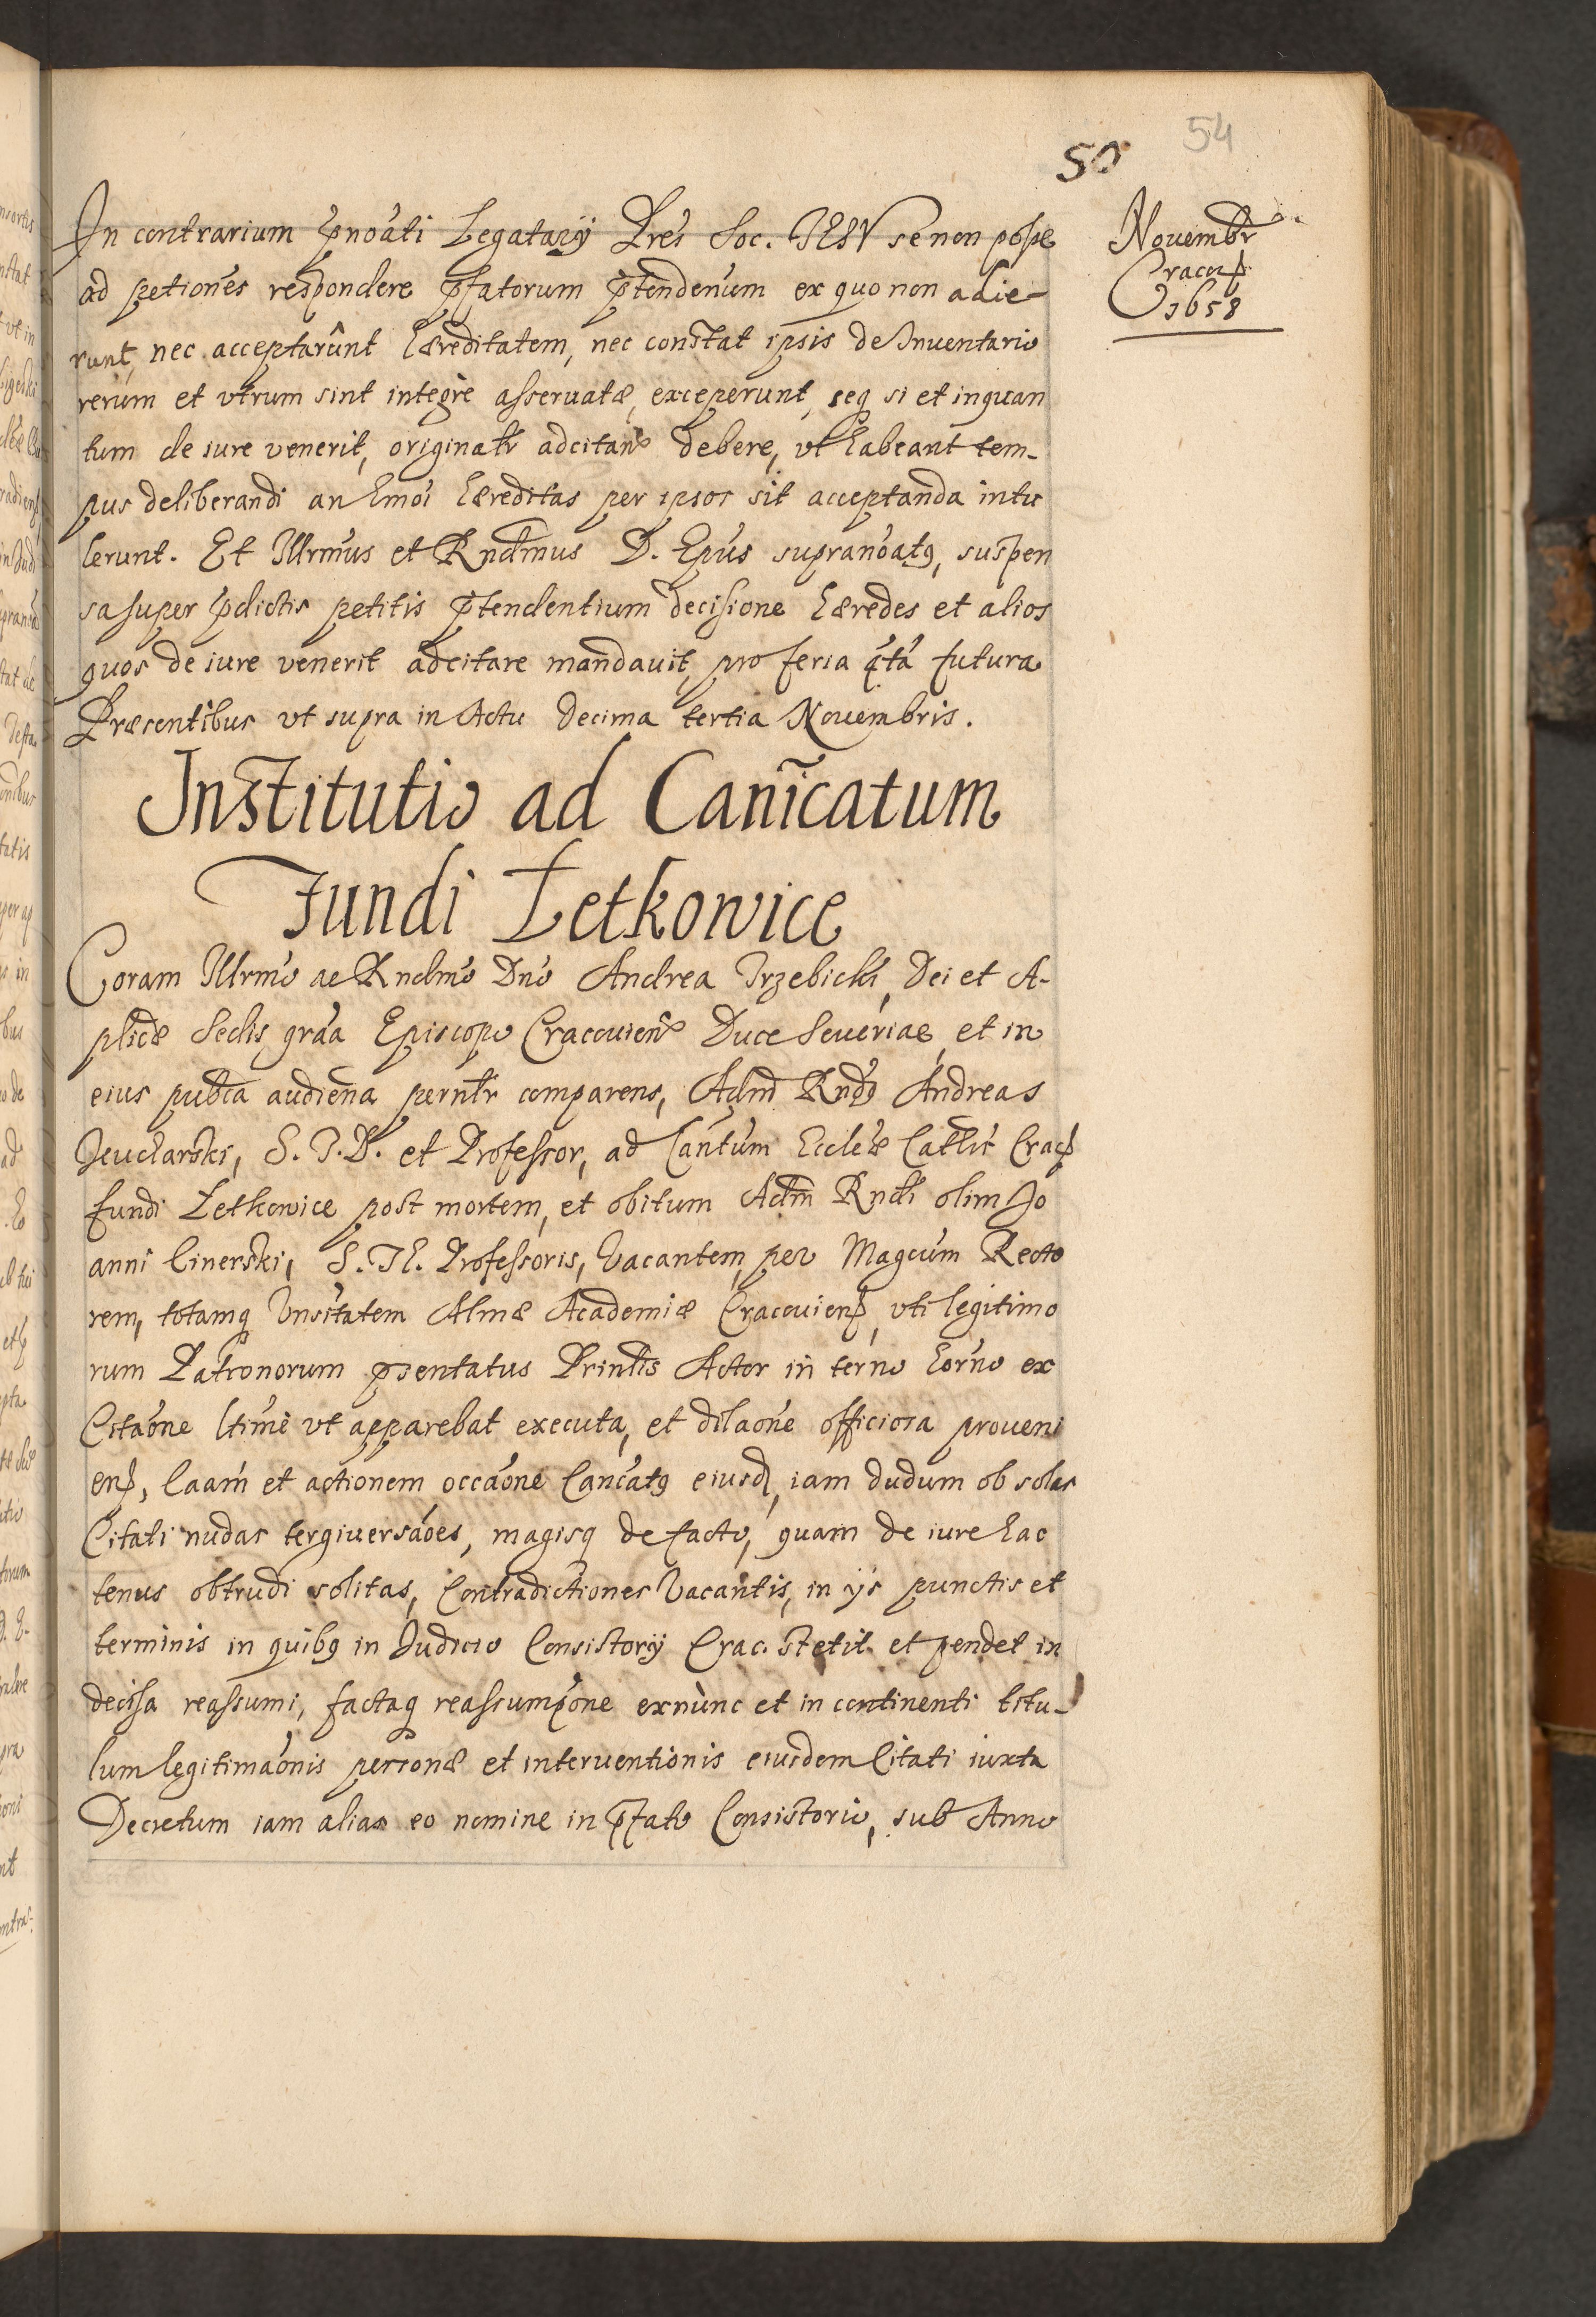 50
54
Novembr
Cracov
1658
In contrarium pnoati Legatarij Pres Soc. IESV se non posse
ad petiones respondere pfatorum ptendenum ex quo non adie-
runt, nec acceptarunt hæreditatem, nec constat ipsis de Inuentario
rerum et vtrum sint integre asseruatæ, exceperunt, seq si et inquan
tum de iure venerit, originatr adcitan debere, vt habeant tem-
pus deliberandi an hmoi hæreditas per ipsos sit acceptanda intu
lerunt. Et Illrmus et Rndmus D. Epus supranoatq, suspen
sa super pdictis petitis ptendentium decisione hæredes et alios
quos de iure venerit adcitare mandauit, pro feria qta futura
Præsentibus vt supra in Actu decima tertia Novembris.
Institutio ad Canicatum
Fundi Łetkowice
Coram Illrmo ae Rndmo Dno Andrea Trzebicki, Dei et A-
plicæ Sedis graa Episcopo Cracouien Duce Seueriae, et in
eius publca audiena pernlr comparens, Adm Rndq Andreas
Jeucharski, S. T. D. et Professor, ad Cantum Eccleæ Cathlis Crac
fundi Letkowice post mortem, et obitum Adm Rndi olim Jo
anni Cinerski, S. Th. Professoris, Vacantem, per Magcum Recto
rem, totamq Vnsitatem Almæ Academiæ Cracouien, vti legitimo
rum Patronorum psentatus Prinlis Actor in terno horno ex
Citaone ltime vt apparebat executa, et dilaone officiosa proueni
en, Caam et actionem occaone Cancatq eiusd, iam dudum ob solas
Citati nudas tergiuersaoes, magisq de facto, quam de iure hac
tenus obtrudi solitas, Contradictiones Vacantis, in ijs punctis et
terminis in quibq in Iudicio Consistorij Crac. stetit et pendet in
decisa reassumi, factaq reassumpone exnunc et in continenti titu-
lum legitimaonis personæ et interuentionis eiusdem Citati iuxta
Decretum iam alias eo nomine in pfato Consistorio, sub Anno